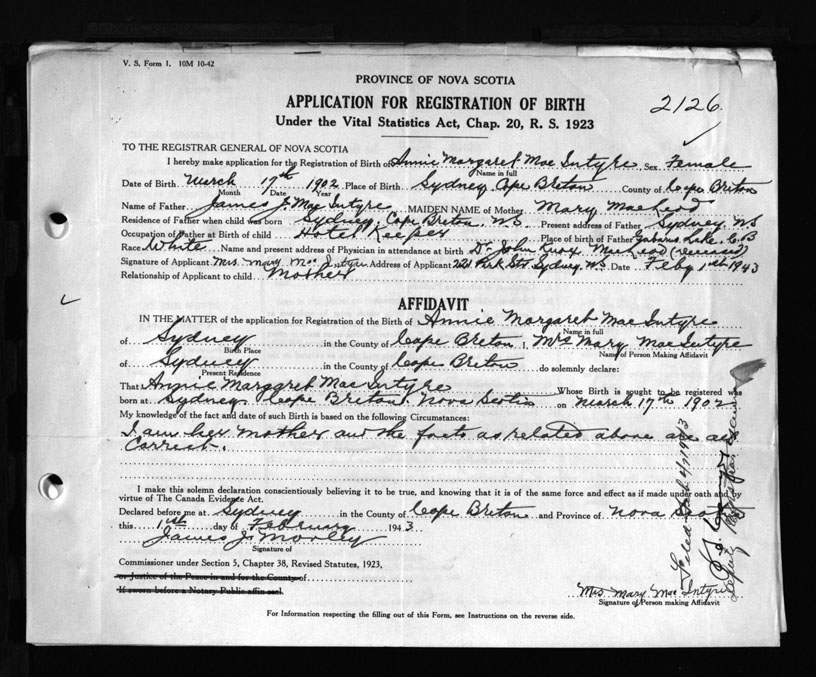 V. S. Form 1. 10M 10-42
PROVINCE OF NOVA SCOTIA
APPLICATION FOR REGISTRATION OF BIRTH
2126
Under the Vital Statistics Act, Chap. 20, R. S. 1923
TO THE REGISTRAR GENERAL OF NOVA SCOTIA
I hereby make application for the Registration of Birth of Annie Margaret Mac Intyre, Sex Female
Name in full
Date of Birth March 17th 1902 Place of Birth Sydney Cape Breton County of Cape Breton
Month Date Year
Name of Father James J. Mac Intyre MAIDEN NAME of Mother Mary MacLeod
Residence of Father when child was born Sydney, Cape Breton, N.S. Present address of Father Sydney N.S
Occupation of Father at Birth of child Hotel Keeper Place of birth of Father Gabarus Lake, C.B
Race White Name and present address of Physician in attendance at birth Dr. John Knox MacLeod (deceased)
Signature of Applicant Mrs. Mary Mac Intyre Address of Applicant 221 Park Str Sydney N.S. Date Feby 1st 1943
Relationship of Applicant to child Mother
AFFIDAVIT
IN THE MATTER of the application for Registration of the Birth of Annie Margaret Mac Intyre
Name in full
of Sydney in the County of Cape Breton I, Mrs Mary Mac Intyre
Birth Place Name of Person Making Affidavit
of Sydney in the County of Cape Breton do solemnly declare:
Present Residence
That Annie Margaret Mac Intyre Whose Birth is sought to be registered was
born at Sydney Cape Breton, Nova Scotia on March 17th 1902
My knowledge of the fact and date of such Birth is based on the following Circumstances:
I am her mother and the facts as related above are all
Correct.
I make this solemn declaration conscientiously believing it to be true, and knowing that it is of the same force and effect as if made under oath and by
virtue of The Canada Evidence Act.
Declared before me at Sydney in the County of Cape Breton and Province of Nova Scotia
this 1st day of February 1943.
James J. Morley
Signature of
Commissioner under Section 5, Chapter 38, Revised Statutes, 1923,
or Justice of the Peace in and for the County of
If sworn before a Notary Public affix seal
Mrs. Mary Mac Intyre
Signature of Person making Affidavit
For Information respecting the filling out of this Form, see Instructions on the reverse side.
Filed Feb 4, 1943
Deputy Registrar General